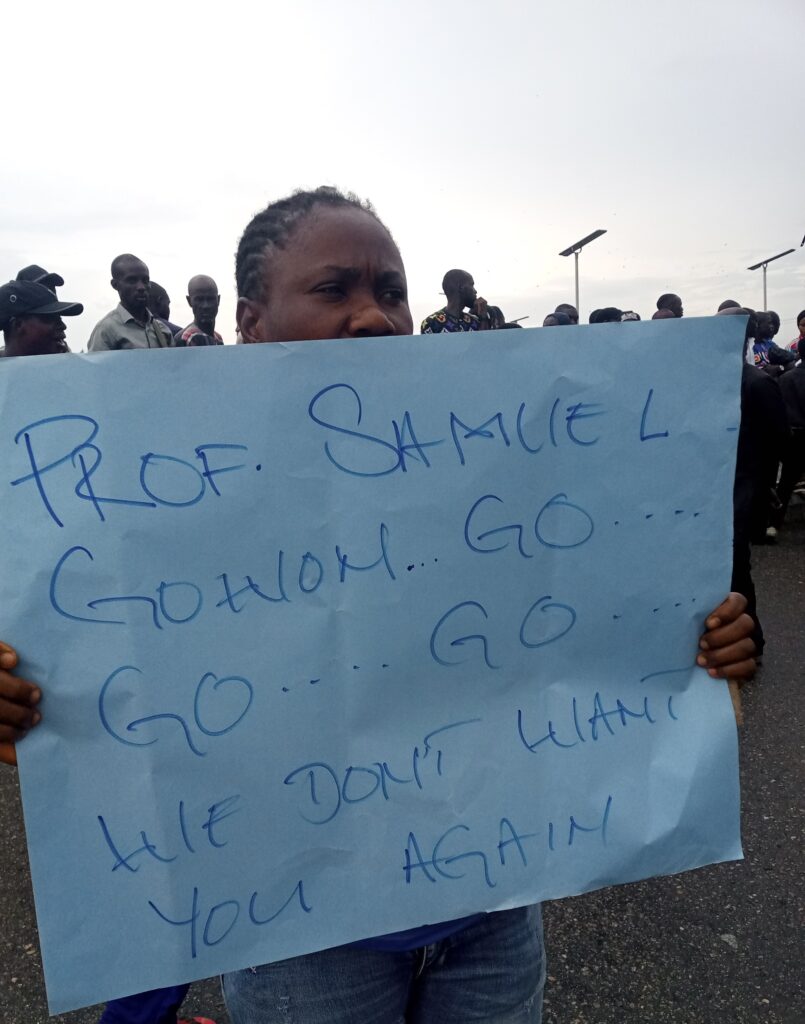 PROF. SAMUEL
GOWON... GO....
GO..... GO.....
WE DONT WANT
YOU AGAIN